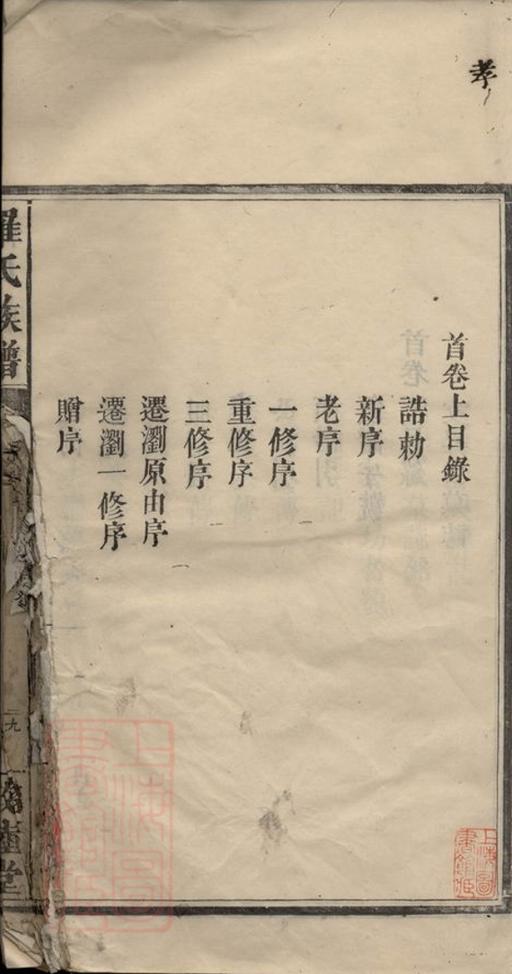 孝
首卷上目錄
誥勅
新序
老序
一修序
重修序
三修序
遷瀏原由序
遷瀏一修序
贈序
羅氏族譜
一九
堂
上海圖書館藏